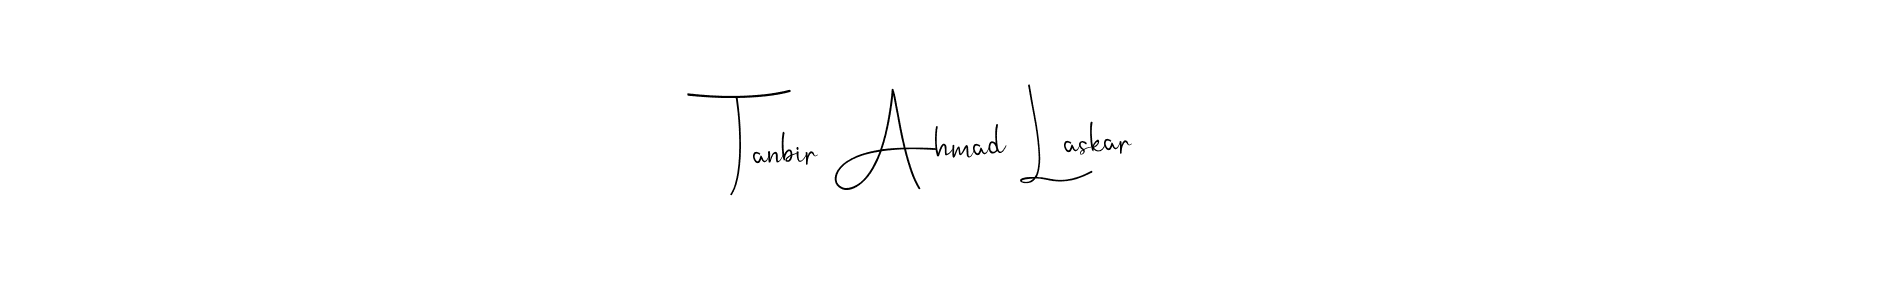 Tanbir Ahmad Laskar